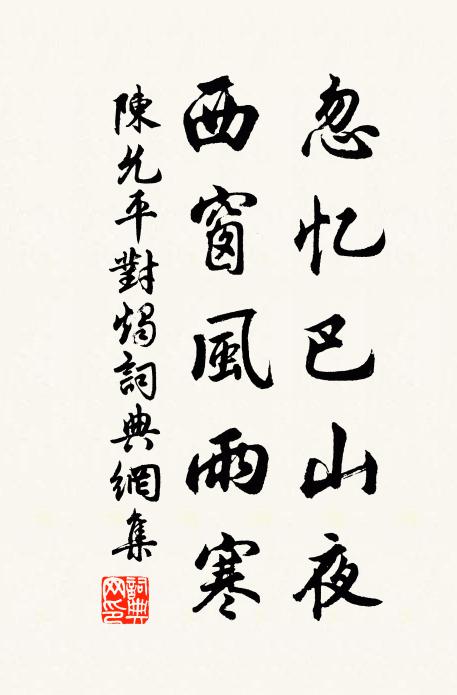 忽忆巴山夜
西窗風雨寒
陳允平對燭詞典網集
詞典网印